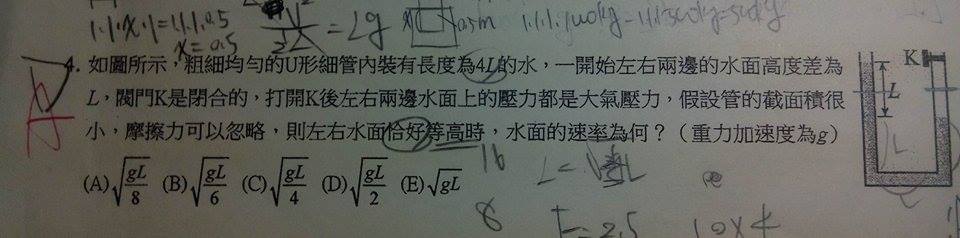 1.1.x.1=1.1.1.0.5
x=0.5
0.5m
4. 如圖所示，粗細均勻的U形細管內裝有長度為4L的水，一開始左右兩邊的水面高度差為
L，閥門K是閉合的，打開K後左右兩邊水面上的壓力都是大氣壓力，假設管的截面積很
小，摩擦力可以忽略，則左右水面恰好等高時，水面的速率為何？（重力加速度為g）
(A)√gL/8 (B)√gL/6 (C)√gL/4 (D)√gL/2 (E)√gL
K
L
L
16
8
10x4